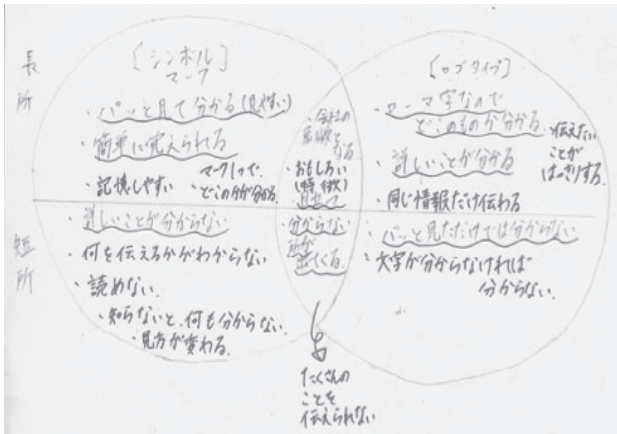 長所
短所
[シンボル
マーク]
・パッと見て分かる(見やすい)
・簡単に覚えられる
・記憶しやすい
マーク1つで、
どこのか分かる。
・詳しいことが分からない
・何を伝えるかがわからない
・読めない。
・知らないと、何も分からない。
・見方が変わる。
・会社の
なる
・おもしろい
(特徴)
分からない
出てくる。
たくさんの
ことを
伝えられない
[ロゴタイプ]
・ローマ字なので
どこのものか分かる。
・詳しいことが分かる
・同じ情報だけ伝わる
伝えたい
ことが
はっきりする。
・パッと見ただけでは分からない
・文字が分からなければ
分からない。